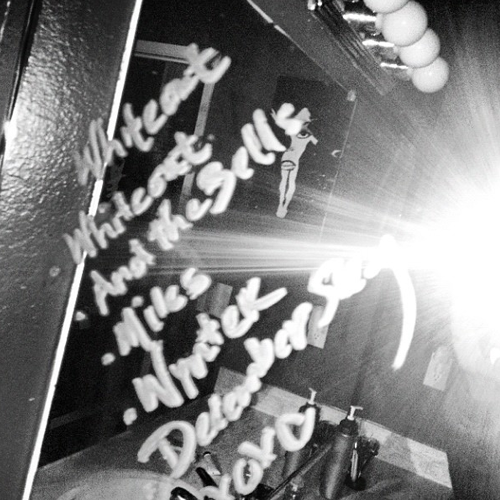 Whiteout
Whiteout
And the Bells
.Miles
.Winter
December Song
xoxo